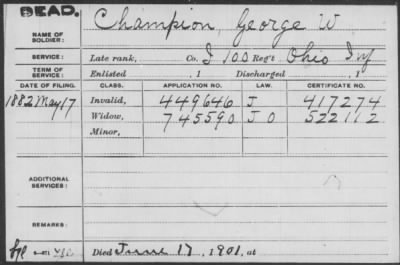 DEAD.
NAME OF SOLDIER: Champion, George W
SERVICE: Late rank, Co. I 100 Reg't Ohio Inf
TERM OF SERVICE: Enlisted , 1 Discharged , 1
DATE OF FILING. CLASS. APPLICATION NO. LAW. CERTIFICATE NO.
1882 May 17 Invalid, 449646 J 417274
Widow, 745590 J O 522112
Minor,
ADDITIONAL SERVICES:
REMARKS:
Died June 17, 1901, at